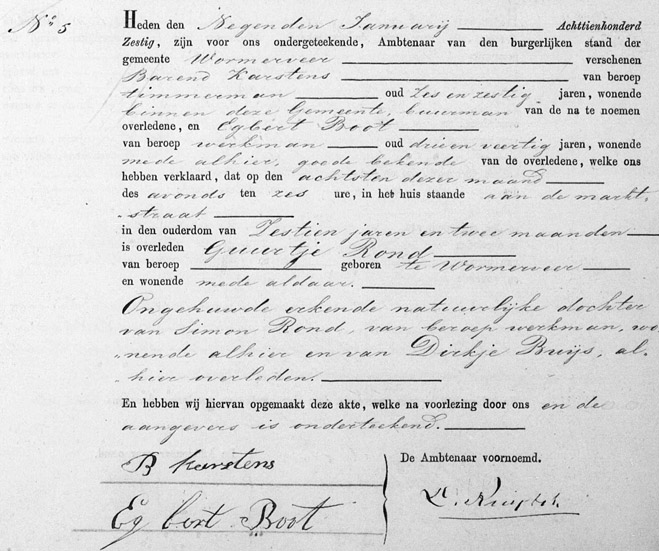 No 5
Heden den Negenden Januarij Achttienhonderd
Zestig, zijn voor ons ondergeteekende, Ambtenaar van den burgerlijken stand der
gemeente Wormerveer verschenen
Barend Karstens van beroep
timmerman oud zes en zestig jaren, wonende
binnen deze Gemeente, buurman van de na te noemen
overledene, en Egbert Boot
van beroep werkman oud drie en veertig jaren, wonende
mede alhier, goede bekende van de overledene, welke ons
hebben verklaard, dat op den achtsten dezer maand
des avonds ten zes ure, in het huis staande aan de markt-
straat
in den ouderdom van Zestien jaren en twee maanden
is overleden Guurtje Rond
van beroep geboren te Wormerveer
en wonende mede aldaar.
Ongehuwde erkende natuurlijke dochter
van Simon Rond, van beroep werkman, wo-
nende alhier en van Dirkje Buijs, al-
hier overleden.
En hebben wij hiervan opgemaakt deze akte, welke na voorlezing door ons en de
aangevers is onderteekend.
B Karstens
De Ambtenaar voornoemd.
Eg bert Boot